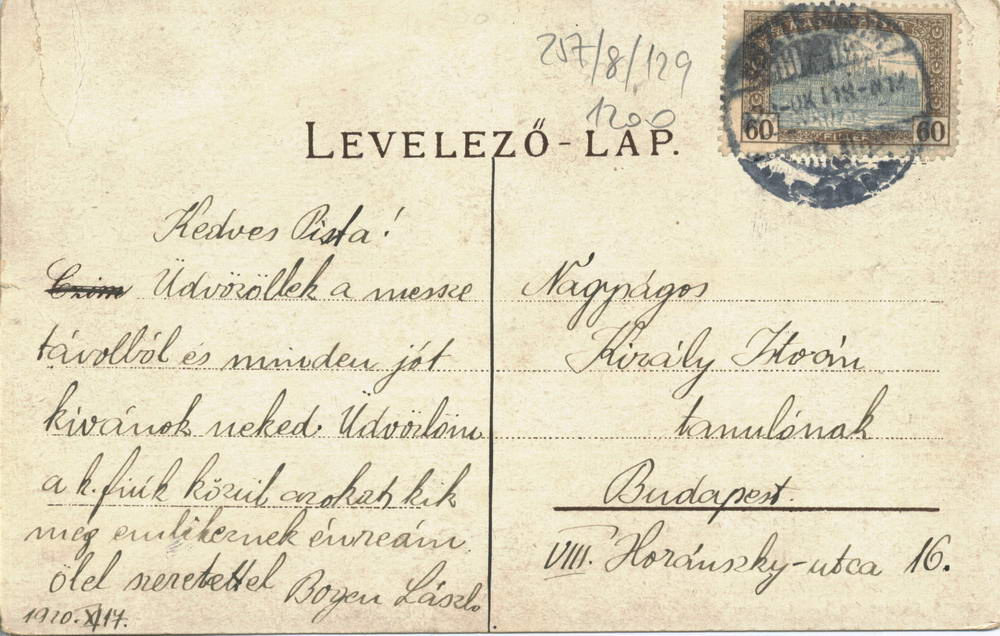 257/8/129
1200
LEVELEZŐ-LAP.
60 FILLÉR 60
Kedves Pista!
Üdvözöllek a messze
távolból és minden jót
kívánok neked. Üdvözlöm
a k. fiúk közül azokat, kik
még emlikeznek énreám
ölel szeretettel Bogen László
1920. XI 17.
Nagyságos
Király István
tanulónak
Budapest.
VIII. Horánszky-utca 16.